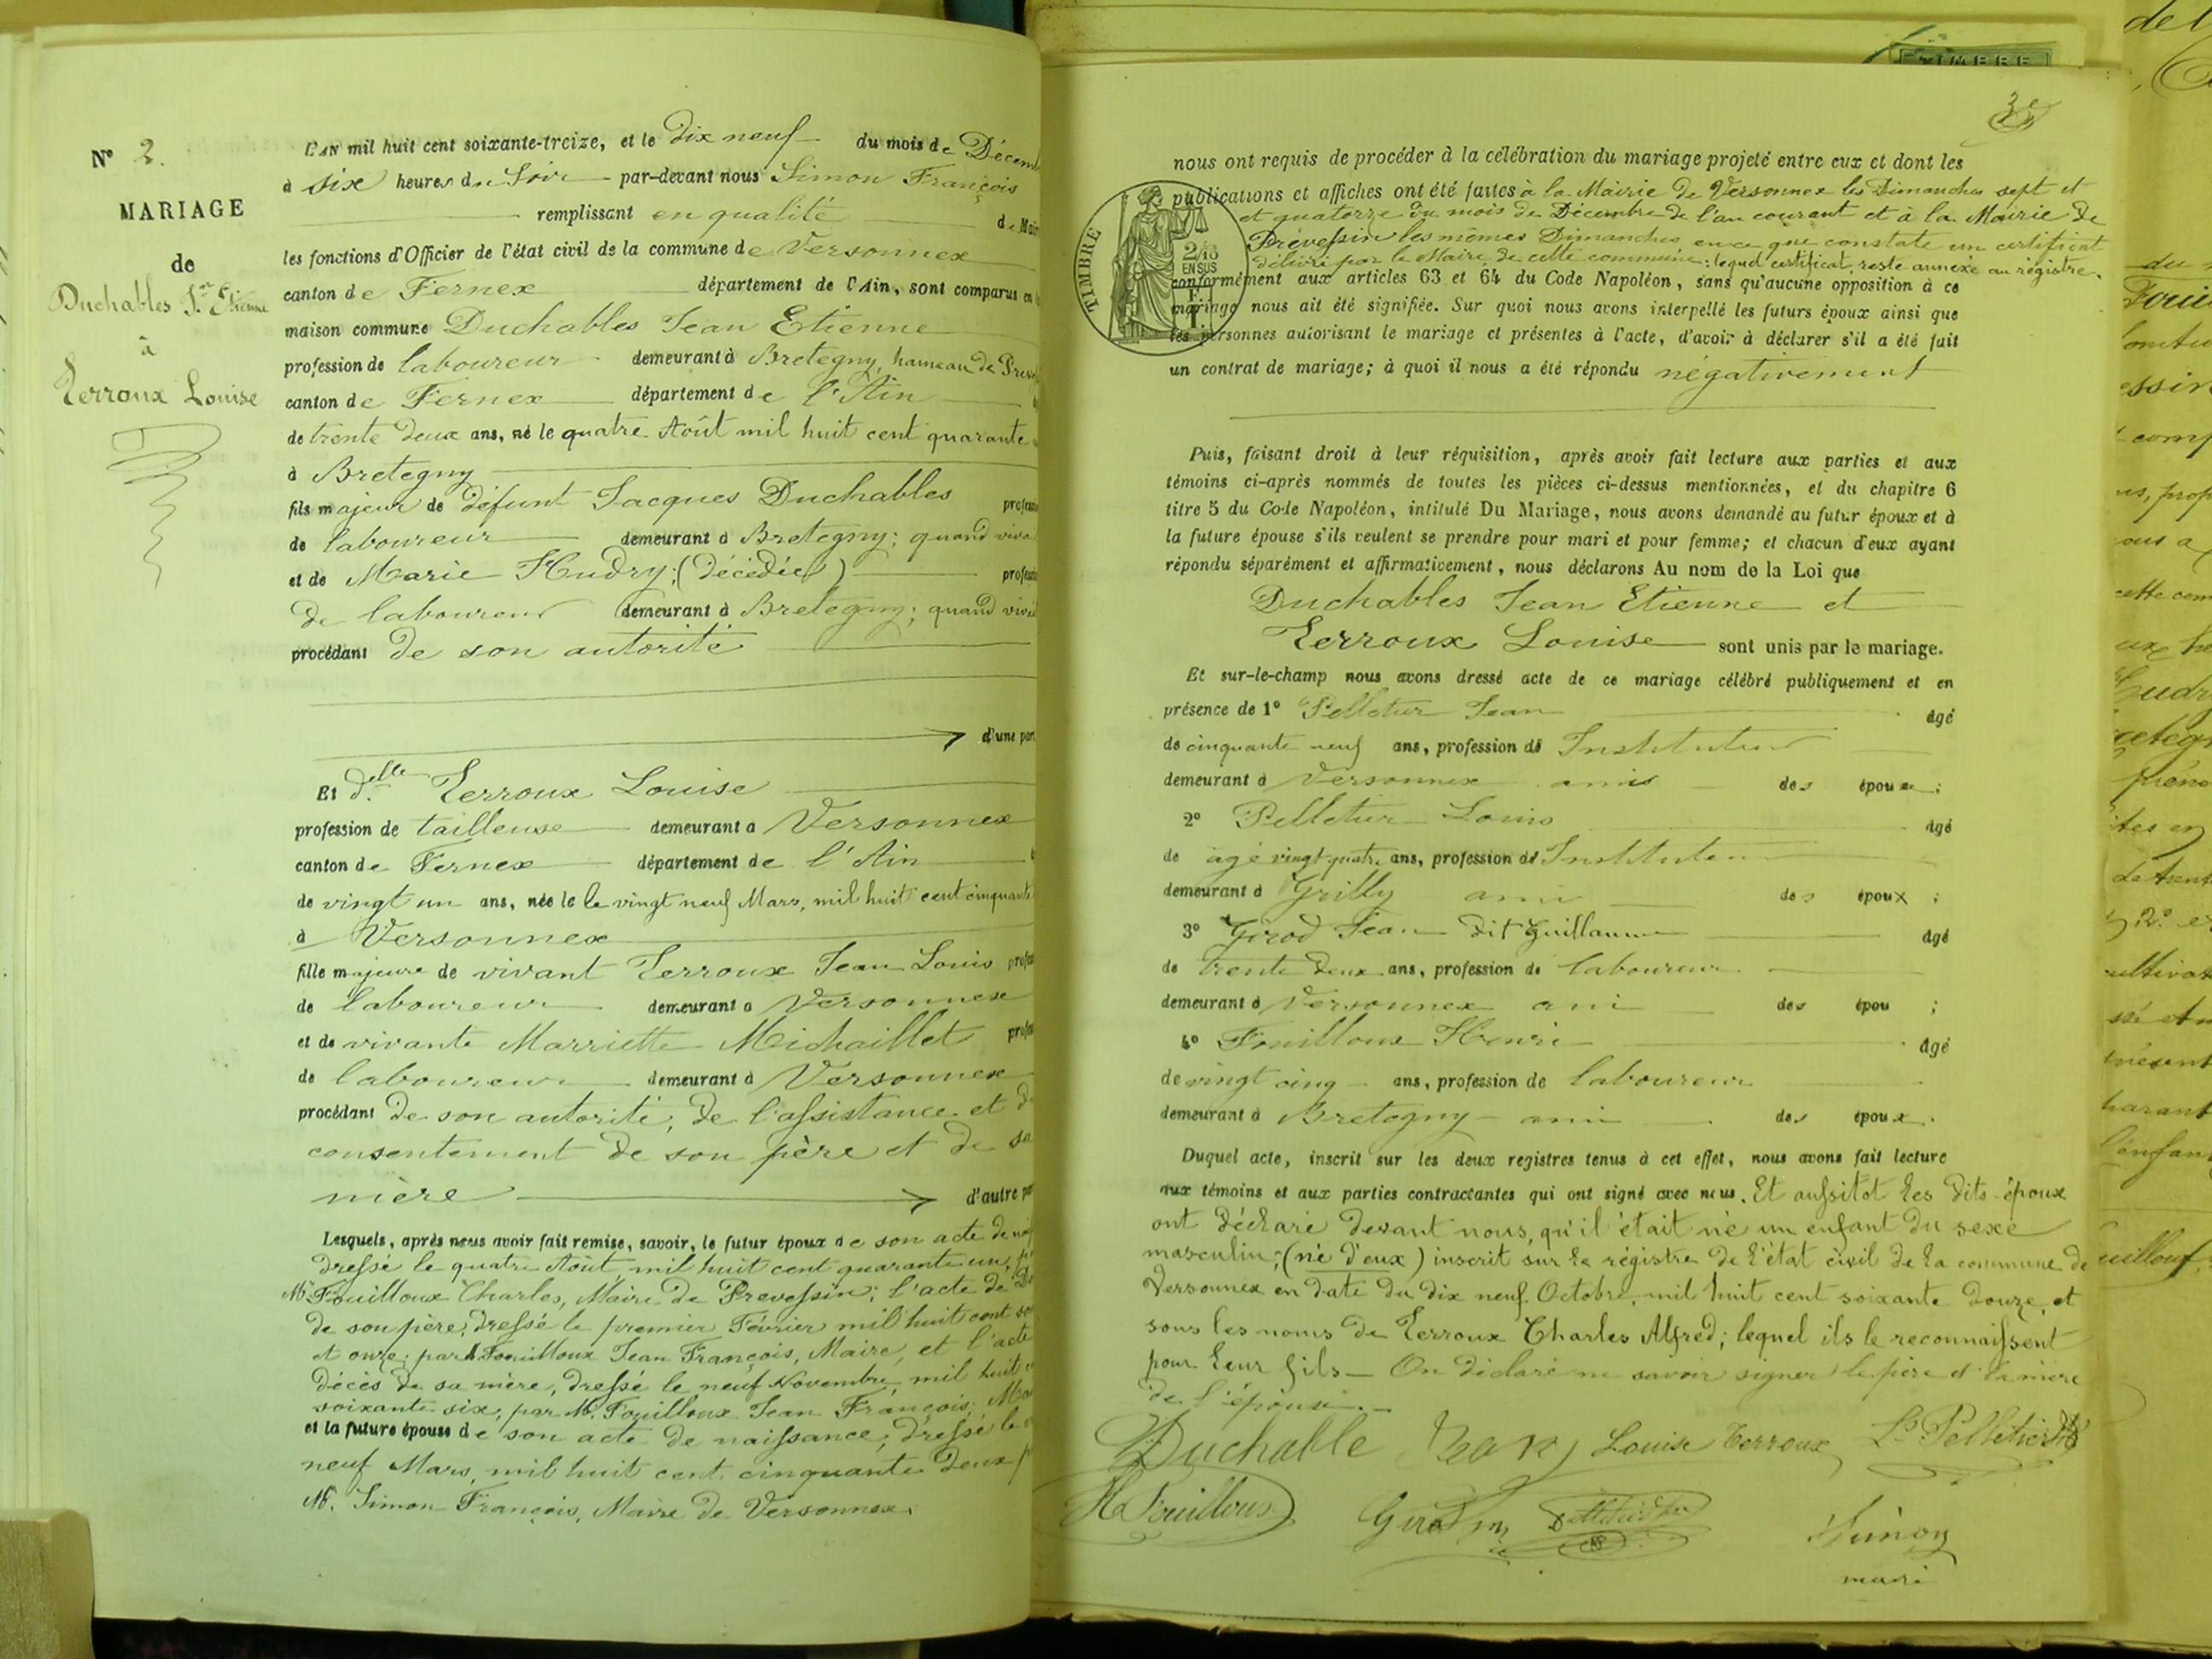 N° 2.
MARIAGE
de
Duchables Jn Etienne
à
Terroux Louise
L'AN mil huit cent soixante-treize, et le Dix neuf du mois de Décemb
à six heures du Soir par-devant nous Simon François
remplissant en qualité de Mair
les fonctions d'Officier de l'état civil de la commune de Versonnex
canton de Fernex département de l'Ain, sont comparus en
maison commune Duchables Jean Etienne
profession de laboureur demeurant à Bretegny, hameau de Prev
canton de Fernex département de l'Ain
de trente deux ans, né le quatre Août mil huit cent quarante
à Bretegny
fils majeur de défunt Jacques Duchables profession
de laboureur demeurant à Bretegny; quand viva
et de Marie Hudry; (Décédée) profession
de laboureur demeurant à Bretegny; quand viva
procédant de son autorité
d'une part
Et delle Terroux Louise
profession de tailleuse demeurant à Versonnex
canton de Fernex département de l'Ain
de vingt un ans, née le le vingt neuf Mars, mil huit cent cinquante
à Versonnex
fille majeure de vivant Terroux Jean Louis profes
de laboureur demeurant à Versonnex
et de vivante Marriette Michaillet profes
de laboureur demeurant à Versonnex
procédant de son autorité, de l'assistance et d
consentement de son père et de sa
mère d'autre par
Lesquels, après nous avoir fait remise, savoir, le futur époux de son acte de nai
dressé le quatre Août, mil huit cent quarante un,
Mr Fouilloux Charles, Maire de Prevessin; l'acte de Dé
de son père, dressé le premier Février mil huit cent soi
et onze; par M. Fouilloux Jean François, Maire, et l'acte
décès de sa mère, dressé le neuf Novembre, mil huit
soixante six, par M. Fouilloux Jean François, Mai
et la future épouse de son acte de naissance; dressé le
neuf Mars, mil huit cent cinquante deux
M. Simon François, Maire de Versonnex.
TIMBRE
nous ont requis de procéder à la célébration du mariage projeté entre eux et dont les
publications et affiches ont été faites à la Mairie de Versonnex les Dimanches sept et
et quatorze du mois de Décembre de l'an courant et à la Mairie de
Prévessin les mêmes Dimanches, en ce que constate un certificat
délivré par le Maire de cette commune; lequel certificat, reste annexé au régistre.
conformément aux articles 63 et 64 du Code Napoléon, sans qu'aucune opposition à ce
mariage nous ait été signifiée. Sur quoi nous avons interpellé les futurs époux ainsi que
les personnes autorisant le mariage et présentes à l'acte, d'avoir à déclarer s'il a été fait
un contrat de mariage; à quoi il nous a été répondu négativement
TIMBRE
2/10
EN SUS
F.
1
Puis, faisant droit à leur réquisition, après avoir fait lecture aux parties et aux
témoins ci-après nommés de toutes les pièces ci-dessus mentionnées, et du chapitre 6
titre 5 du Code Napoléon, intitulé Du Mariage, nous avons demandé au futur époux et à
la future épouse s'ils veulent se prendre pour mari et pour femme; et chacun d'eux ayant
répondu séparément et affirmativement, nous déclarons Au nom de la Loi que
Duchables Jean Etienne et
Terroux Louise sont unis par le mariage.
Et sur-le-champ nous avons dressé acte de ce mariage célébré publiquement et en
présence de 1° Pelletier Jean âgé
de cinquante neuf ans, profession de Instituteur
demeurant à Versonnex amis des époux;
2° Pelletier Louis âgé
de âgé vingt quatre ans, profession de Instituteur
demeurant à Grilly ami des époux;
3° Girod Jean dit Guillaume âgé
de trente deux ans, profession de laboureur
demeurant à Versonnex ami des épou;
4° Fouilloux Henri âgé
de vingt cinq ans, profession de laboureur
demeurant à Bretegny ami des époux.
Duquel acte, inscrit sur les deux registres tenus à cet effet, nous avons fait lecture
aux témoins et aux parties contractantes qui ont signé avec nous. Et aussitot les dits époux
ont déclaré devant nous, qu'il était né un enfant du sexe
masculin; (né d'eux) inscrit sur le régistre de l'état civil de la commune de
Versonnex en date du dix neuf Octobre, mil huit cent soixante douze, et
sous les noms de Terroux Charles Alfred; lequel ils le reconnaissent
pour leur fils — On déclaré ne savoir signer le père et la mère
de l'épouse.
Duchable Louise Terroux Ls Pelletier
H Fouilloux Girod Pelletier Simon